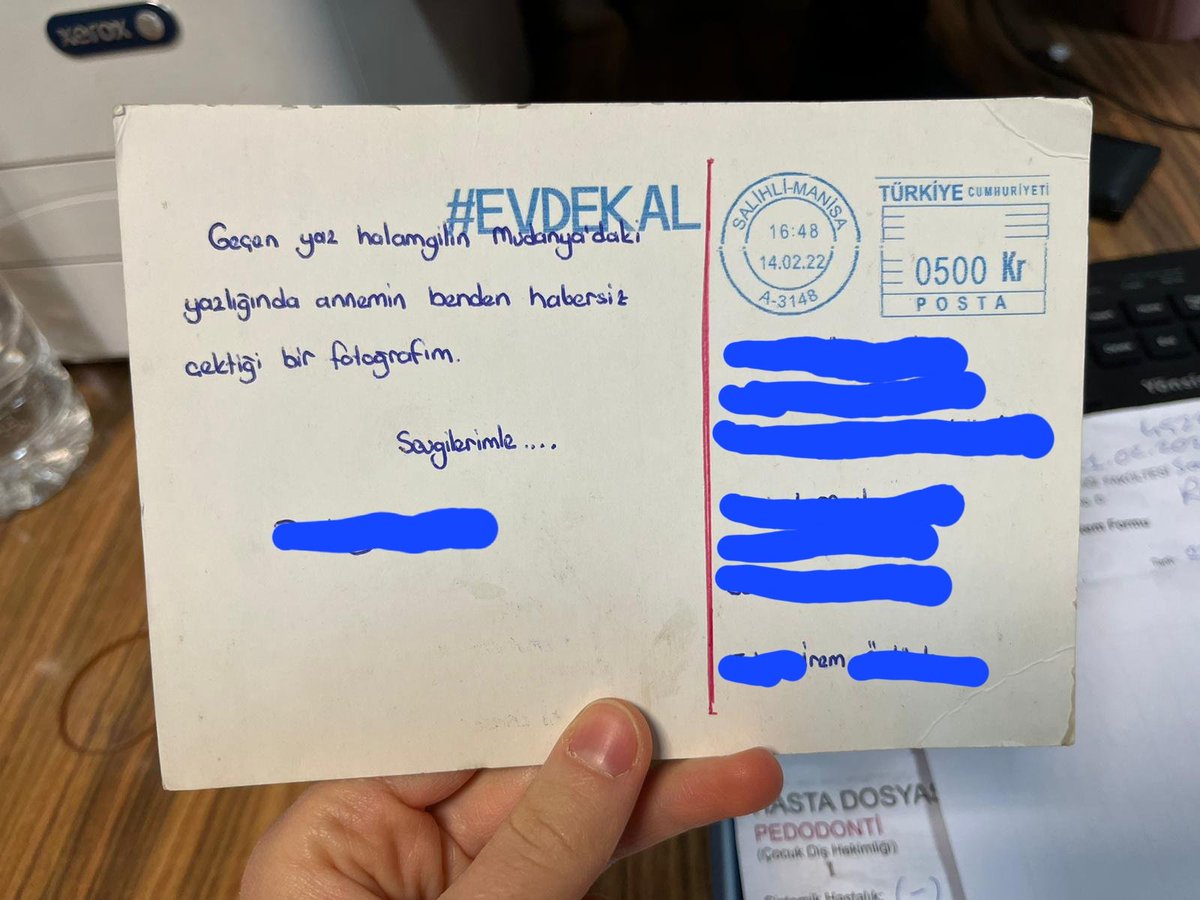 xerox
#EVDEKAL
Geçen yaz halamgilin Mudanya'daki
yazlığında annemin benden habersiz
çektiği bir fotoğrafım.
Sevgilerimle....
SALİHLİ-MANİSA
16:48
14.02.22
A-3148
TÜRKİYE CUMHURİYETİ
0500 Kr
POSTA
irem
HASTA DOSYAS
PEDODONTİ
(Çocuk Diş Hekimliği)
1
Sistemik Hastalık: (-)